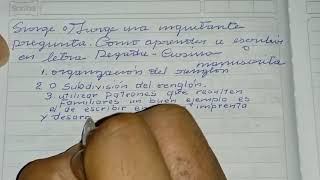 Surge o/ Surge una inquietante
pregunta. Como aprender a escribir
en letra Pegada - Cursiva
manuscrita
1. organización del renglón
2. O Subdivisión del renglón.
3. utilizar patrones que resulten
familiares un buen ejemplo es
el de escribir en imprenta
y desarr